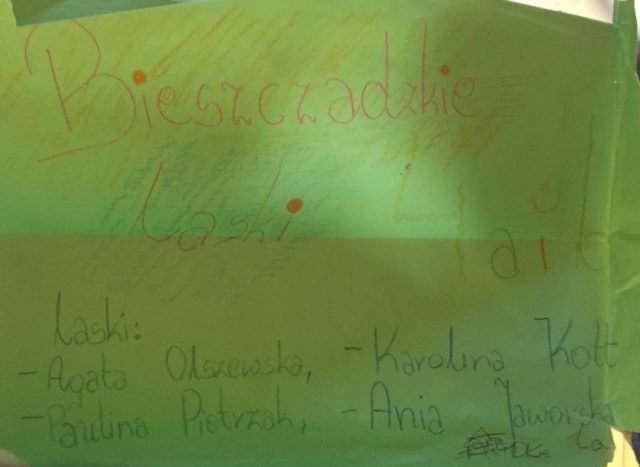 Bieszczadzkie
Laski 4
Laski:
- Agata Olszewska, - Karolina Kott
- Paulina Pietrzak, - Ania Jaworska